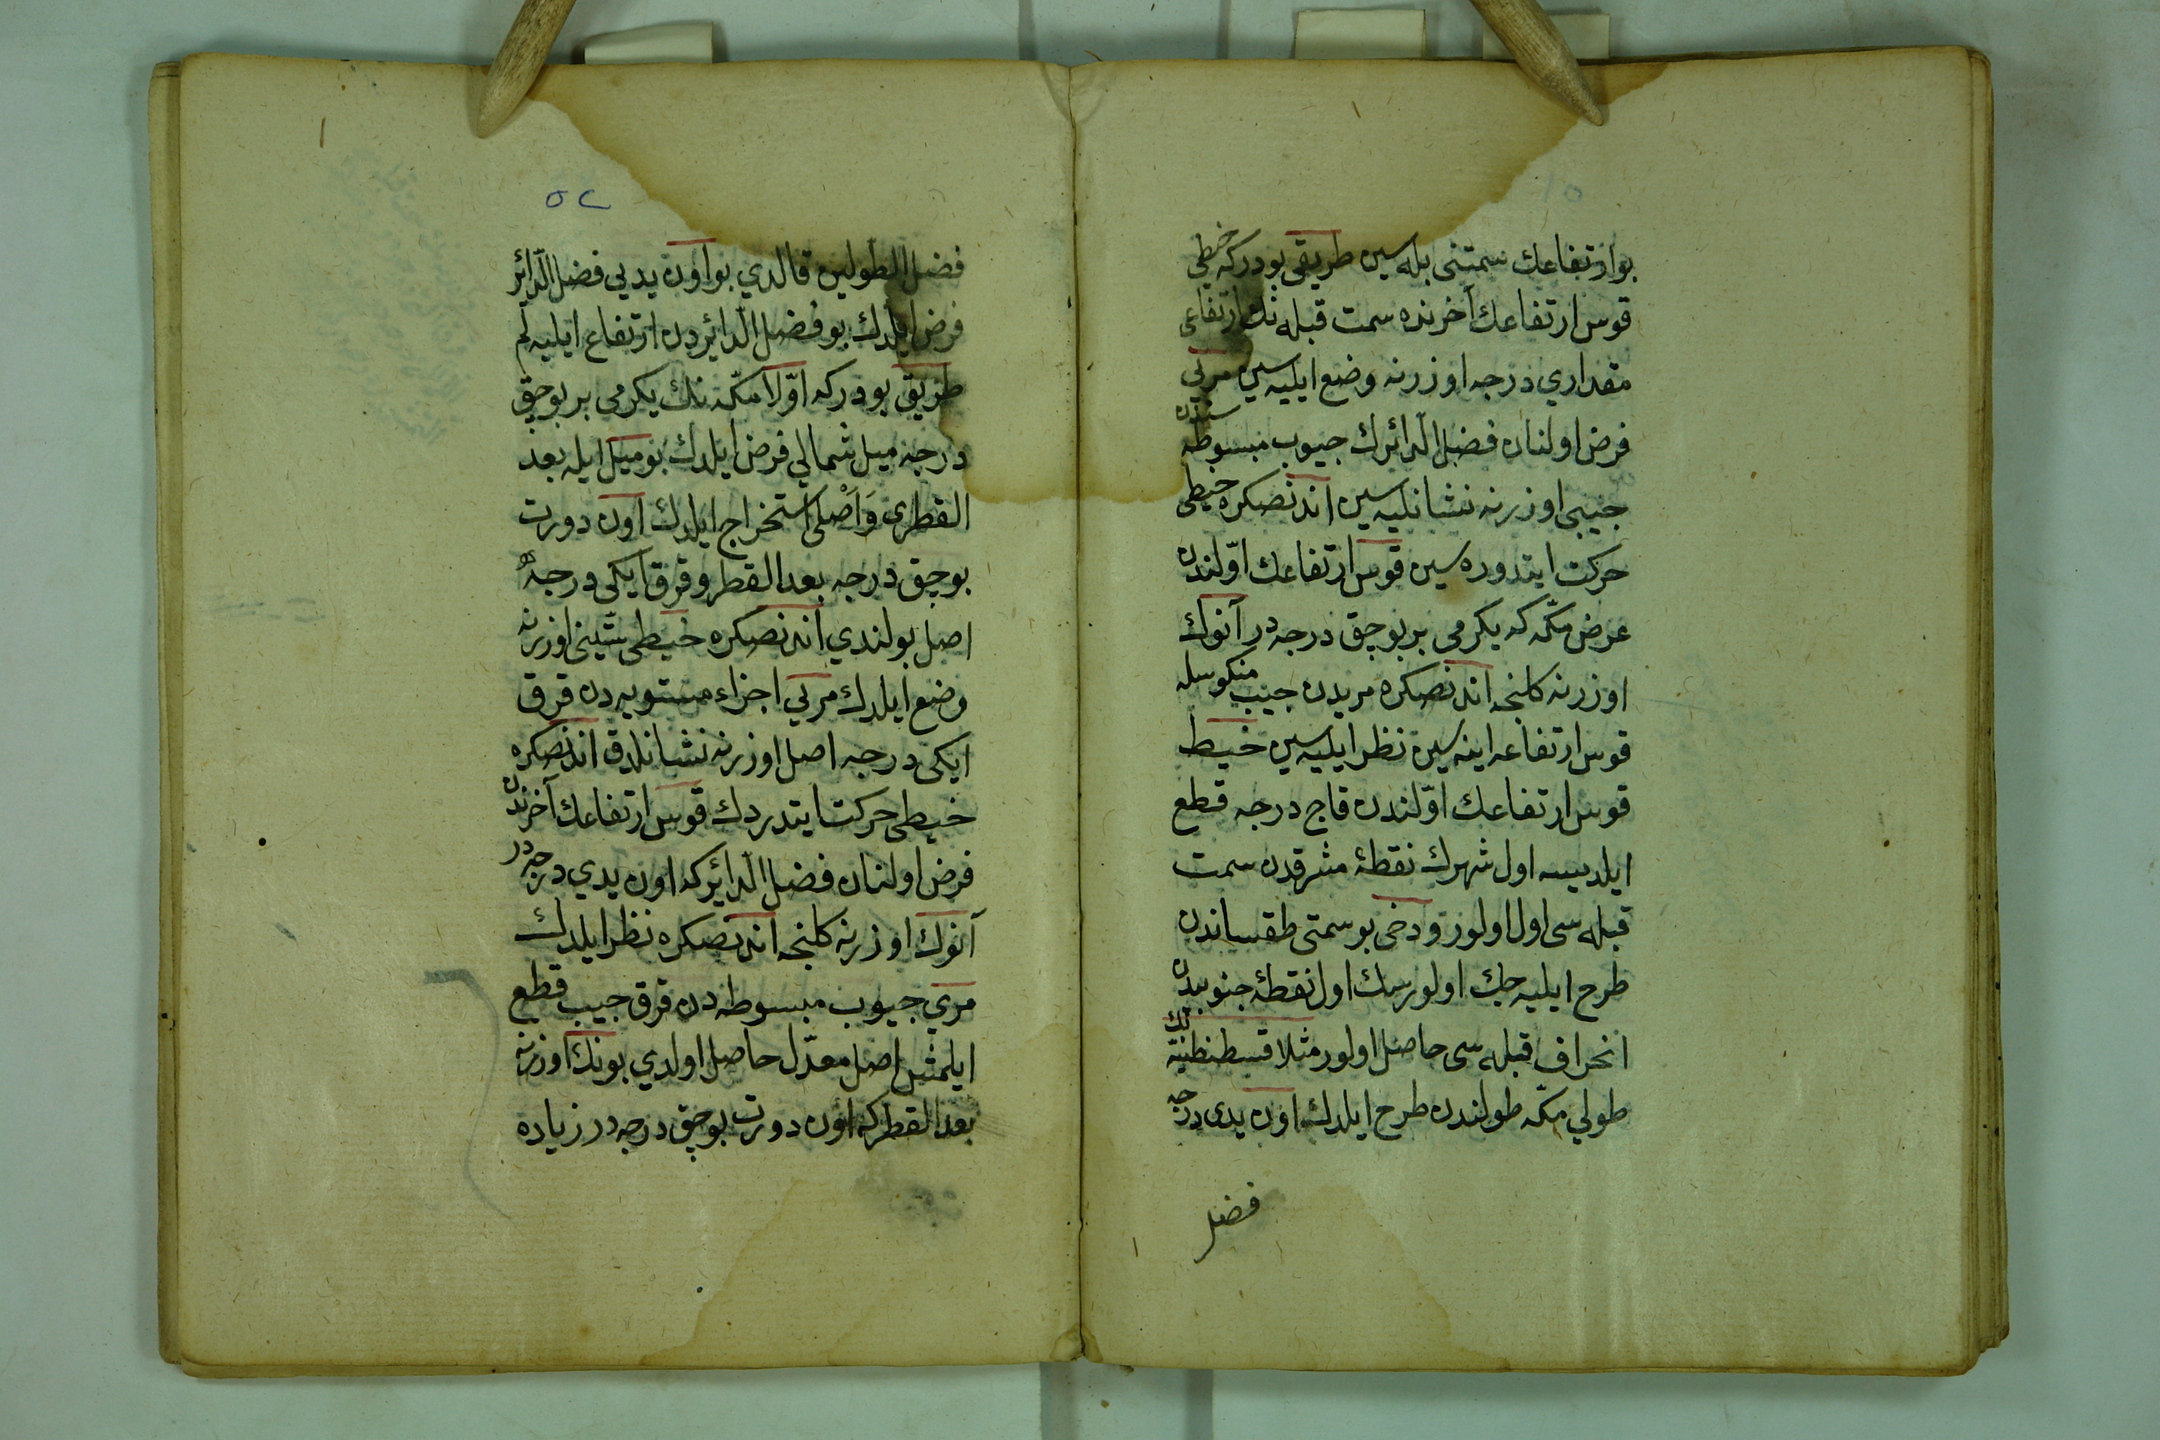 بو ارتفاعك سمتنى بله سين طريقى بودركه خيطى
قوس ارتفاعك آخرنده سمت قبله نك ارتفاعى
مقدارى درجه اوزرنه وضع ايليه سين مريى
فرض اولنان فضل الدائرك جيوب مبسوطه سندن
جيبى اوزرنه نشانليه سين اندنصكره خيطى
حركت ايتدوره سين قوس ارتفاعك اوّلندن
عرض مكّه كه يكرمى بر بوچق درجه در آنوك
اوزرنه كلنجه اندنصكره مريدن جيب منكوسله
قوس ارتفاعه اينه سين نظر ايليه سين خيط
قوس ارتفاعك اوّلندن قاچ درجه قطع
ايلديسه اول شهرك نقطۀ مشرقدن سمت
قبله سى اول اولور ودخى بو سمتى طقساندن
طرح ايليه جك اولورسك اول نقطۀ جنوبدن
انحراف قبله سى حاصل اولور مثلا قسطنطنيّه نك
طولي مكّه طولندن طرح ايلدك اون يدى درجه
فضل
٥٢
فضل الطولين قالدي بو اون يديي فضل الدّائر
فرض ايلدك بو فضل الدّائردن ارتفاع ايليه لم
طريق بودركه اوّلا مكّه نك يكرمى بر بوچق
درجه ميل شمالي فرض ايلدك بو ميل ايله بعد
القطرى وَاَصْلى استخراج ايلدك اون دورت
بوچق درجه بعد القطر وقرق ايكى درجه
اصل بولندي اندنصكره خيطى ستّينى اوزرنه
وضع ايلدك مريي اجزاء مستويه دن قرق
ايكى درجه اصل اوزرنه نشانلدق اندنصكره
خيطى حركت ايتدردك قوس ارتفاعك آخرندن
فرض اولنان فضل الدّائر كه اون يدي درجه در
آنوك اوزرنه كلنجه اندنصكره نظر ايلدك
مري جيوب مبسوطه دن قرق جيب قطع
ايلمش اصل معدّل حاصل اولدي بونك اوزرنه
بعد القطر كه اون دورت بوچق درجه در زياده